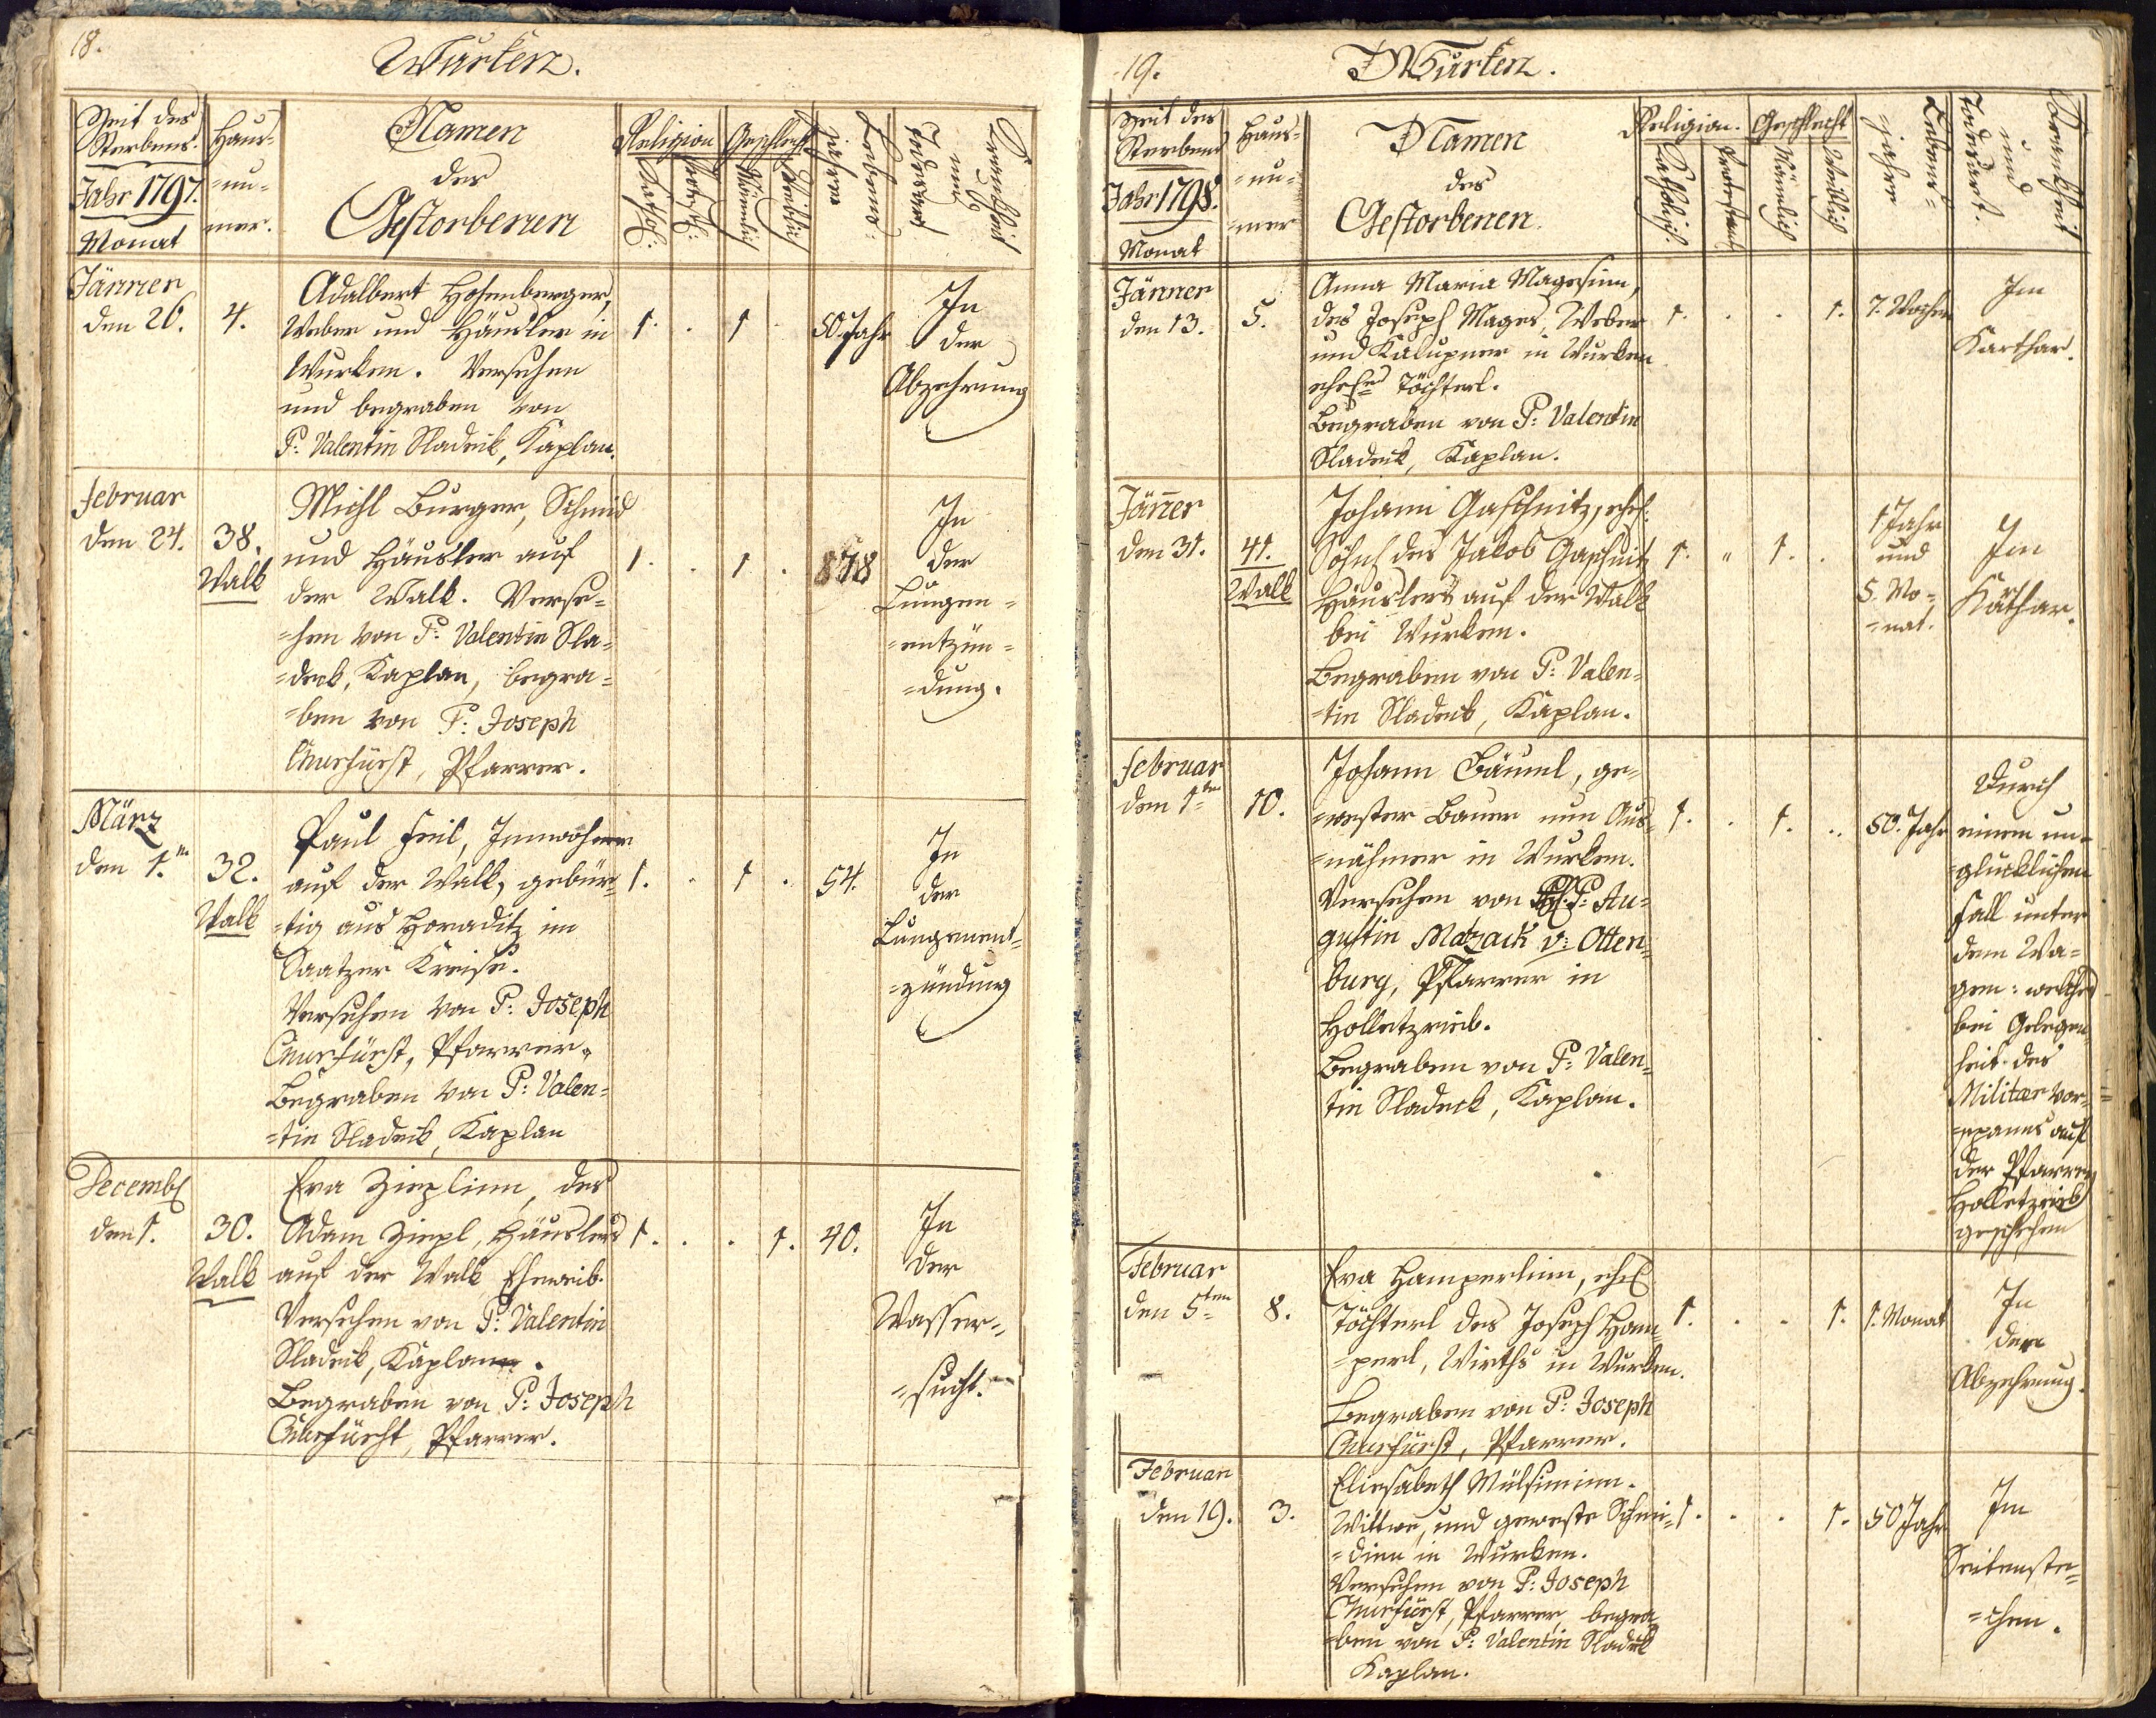 18.
Wurken.
Zeit des
Sterbens.
Jahr 1797.
Monat
Haus=
=nu=
mer.
Namen
der
Gestorbenen
Religion
Kathol:
Protest:
Geschlecht
Männlich
Weiblich
Lebens:
jahre
Krankheit
und
Todesart
Jänner
den 26.
4.
Adalbert Hosenberger,
Weber und Häusler in
Wurken. Versehen
und begraben von
P: Valentin Sladeck, Kaplan.
1. . 1 .
50 Jahr
In
der
Abzehrung
Februar
den 24.
38.
Walk
Michl Burger, Schmid
und Häusler auf
der Walk. Verse=
=hen von P: Valentin Sla=
=deck, Kaplan, begra=
=ben von P: Joseph
Churfürst, Pfarrer.
1. . 1 .
78
In
der
Lungen=
=entzün=
=dung.
März
den 1.ten
32.
Walk
Paul Feil, Innwohner
auf der Walk, gebür=
=tig aus Horaditz im
Saatzer Kreise.
Versehen von P: Joseph
Churfürst, Pfarrer.
Begraben von P: Valen=
=tin Sladeck, Kaplan
1. . 1 .
54.
In
der
Lungenent=
=zündung
Decemb
den 1.
30.
Walk
Eva Zieplinn, des
Adam Ziepl, Häuslers
auf der Walk Eheweib.
Versehen von P: Valentin
Sladeck, Kaplan.
Begraben von P: Joseph
Churfürst, Pfarrer.
1. . . 1.
40.
In
der
Wasser=
=sucht.
19.
Wurken.
Zeit des
Sterbens
Jahr 1798.
Monat
Haus=
=nu=
=mer
Namen
der
Gestorbenen.
Religion.
Katholisch.
Protestant
Geschlecht
Männlich
Weiblich
Lebens=
=jahre
Krankheit
und
Todesart.
Jänner
den 13.
5.
Anna Maria Magesinn,
des Joseph Mages, Weber
und Kalupner in Wurken
ehel Töchterl.
Begraben von P: Valentin
Sladeck, Kaplan.
1. . . 1.
7. Wochen
Im
Karthar.
Jäner
den 31.
41.
Walk
Johann Gaschnitz, ehel:
Söhnl des Jakob Gaschnitz
Häuslers auf der Walk
bei Wurken.
Begraben von P: Valen=
=tin Sladeck, Kaplan.
1. " 1. .
1 Jahr
und
5. Mo=
=nat.
Im
Kathar.
Februar
den 1ten
10.
Johann Bäuml, ge=
=wester Bauer nun Aus=
=nähmer in Wurken.
Versehen von P: Au=
gustin Matzack v: Otten=
burg, Pfarrer in
Holletzrieb.
Begraben von P: Valen=
tin Sladeck, Kaplan.
1. . 1. ..
50. Jahr
Durch
einem un=
=glücklichen
Fall unter
dem Wa=
gen: welches
bei Gelegen
heit des
Militær Vor=
=spanns auf
der Pfarrey
Holletzrieb
geschehen
Februar
den 5ten
8.
Eva Hamperlinn, ehel
Töchterl des Joseph Ham=
=perl, Wirths in Wurken.
Begraben von P: Joseph
Churfürst, Pfarrer.
1. . . 1.
1. Monat
In
der
Abzehrung.
Februar
den 19.
3.
Eliesabeth
Wittwe, und geweste Schmi=
=dinn in Wurken.
Versehen von P: Joseph
Churfürst, Pfarrer, begra=
=ben von P: Valentin Sladeck
Kaplan.
1. . . 1.
50 Jahr
Im
Seitenste=
=chen.